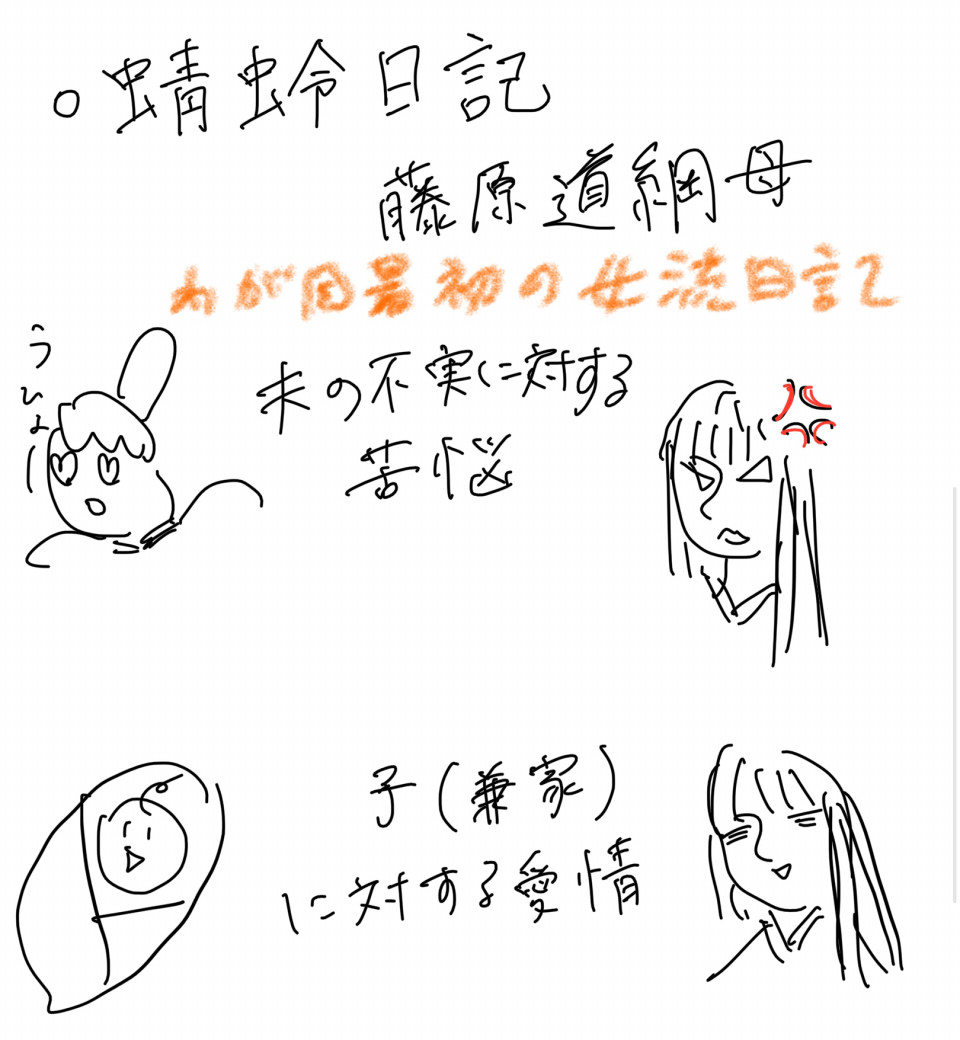 ○蜻蛉日記
藤原道綱母
わが国最初の女流日記
うひょー
夫の不実に対する
苦悩
子(兼家)
に対する愛情